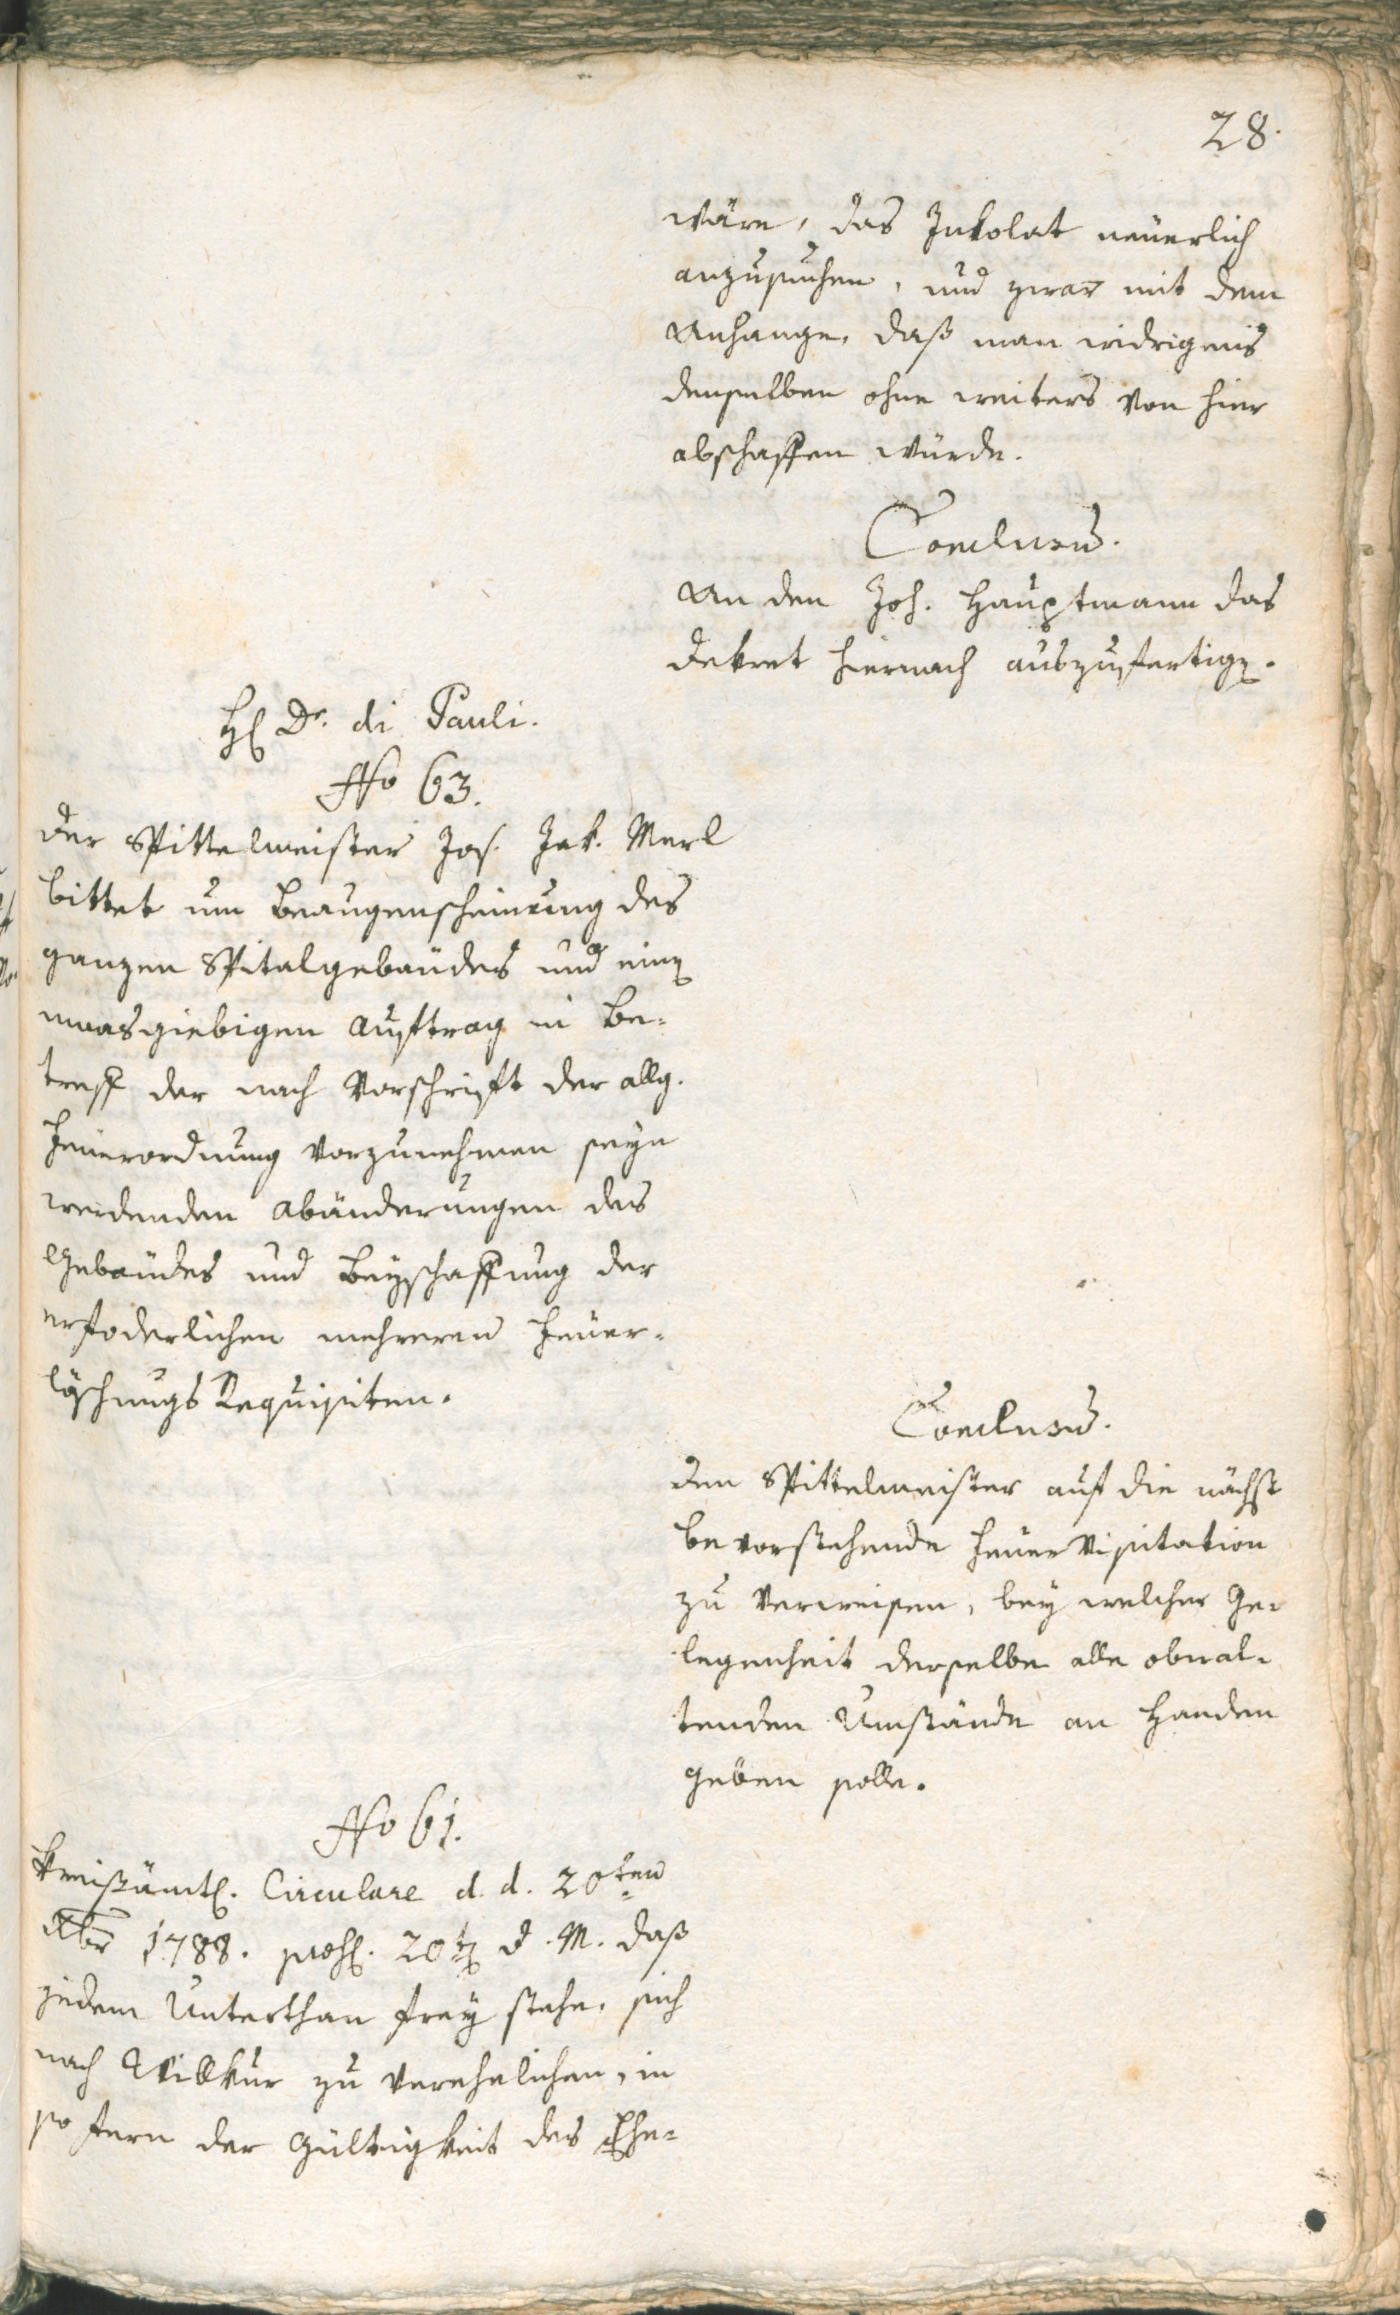 28.
wäre, das Inkolat neüerlich
anzusuchen, und zwar mit dem
Anhange, daß man widrigens
denselben ohne weiters von hier
abschaffen würde.
Conclusum.
An den Joh. Hauptmann das
Dekret hiernach auszufertigen.
H. Dr. di Pauli.
No 63.
Der Spittelmeister Jos. Jak. Merl
bittet um Beaugenscheinigung des
ganzen Spitalgebäudes und einen
maasgiebigen Auftrag in Be-
treff der nach Vorschrift der allg.
Feüerordnung vorzunehmen seyn
werdenden Abänderungen des
Gebäudes und Beyschaffung der
erfoderlichen mehreren Feüer-
löschungs Requisiten.
Conclusum.
Den Spittelmeister auf die nächst
bevorstehende Feüer Visitation
zu verweisen, bey welcher Ge-
legenheit derselbe alle obwal-
tenden Umstände an Handen
geben solle.
No 61.
Kreißämtl. Circulare d. d. 20ten
Xber 1788. 20ten d. M. daß
jedem Unterthan frey stehe, sich
nach Willkür zu verehelichen, in
so fern der Gültigkeit des Ehe-